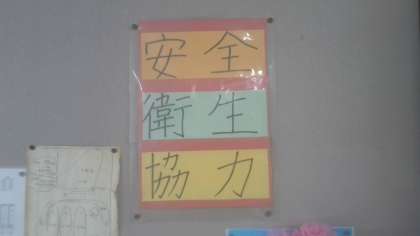 安全
衛生
協力